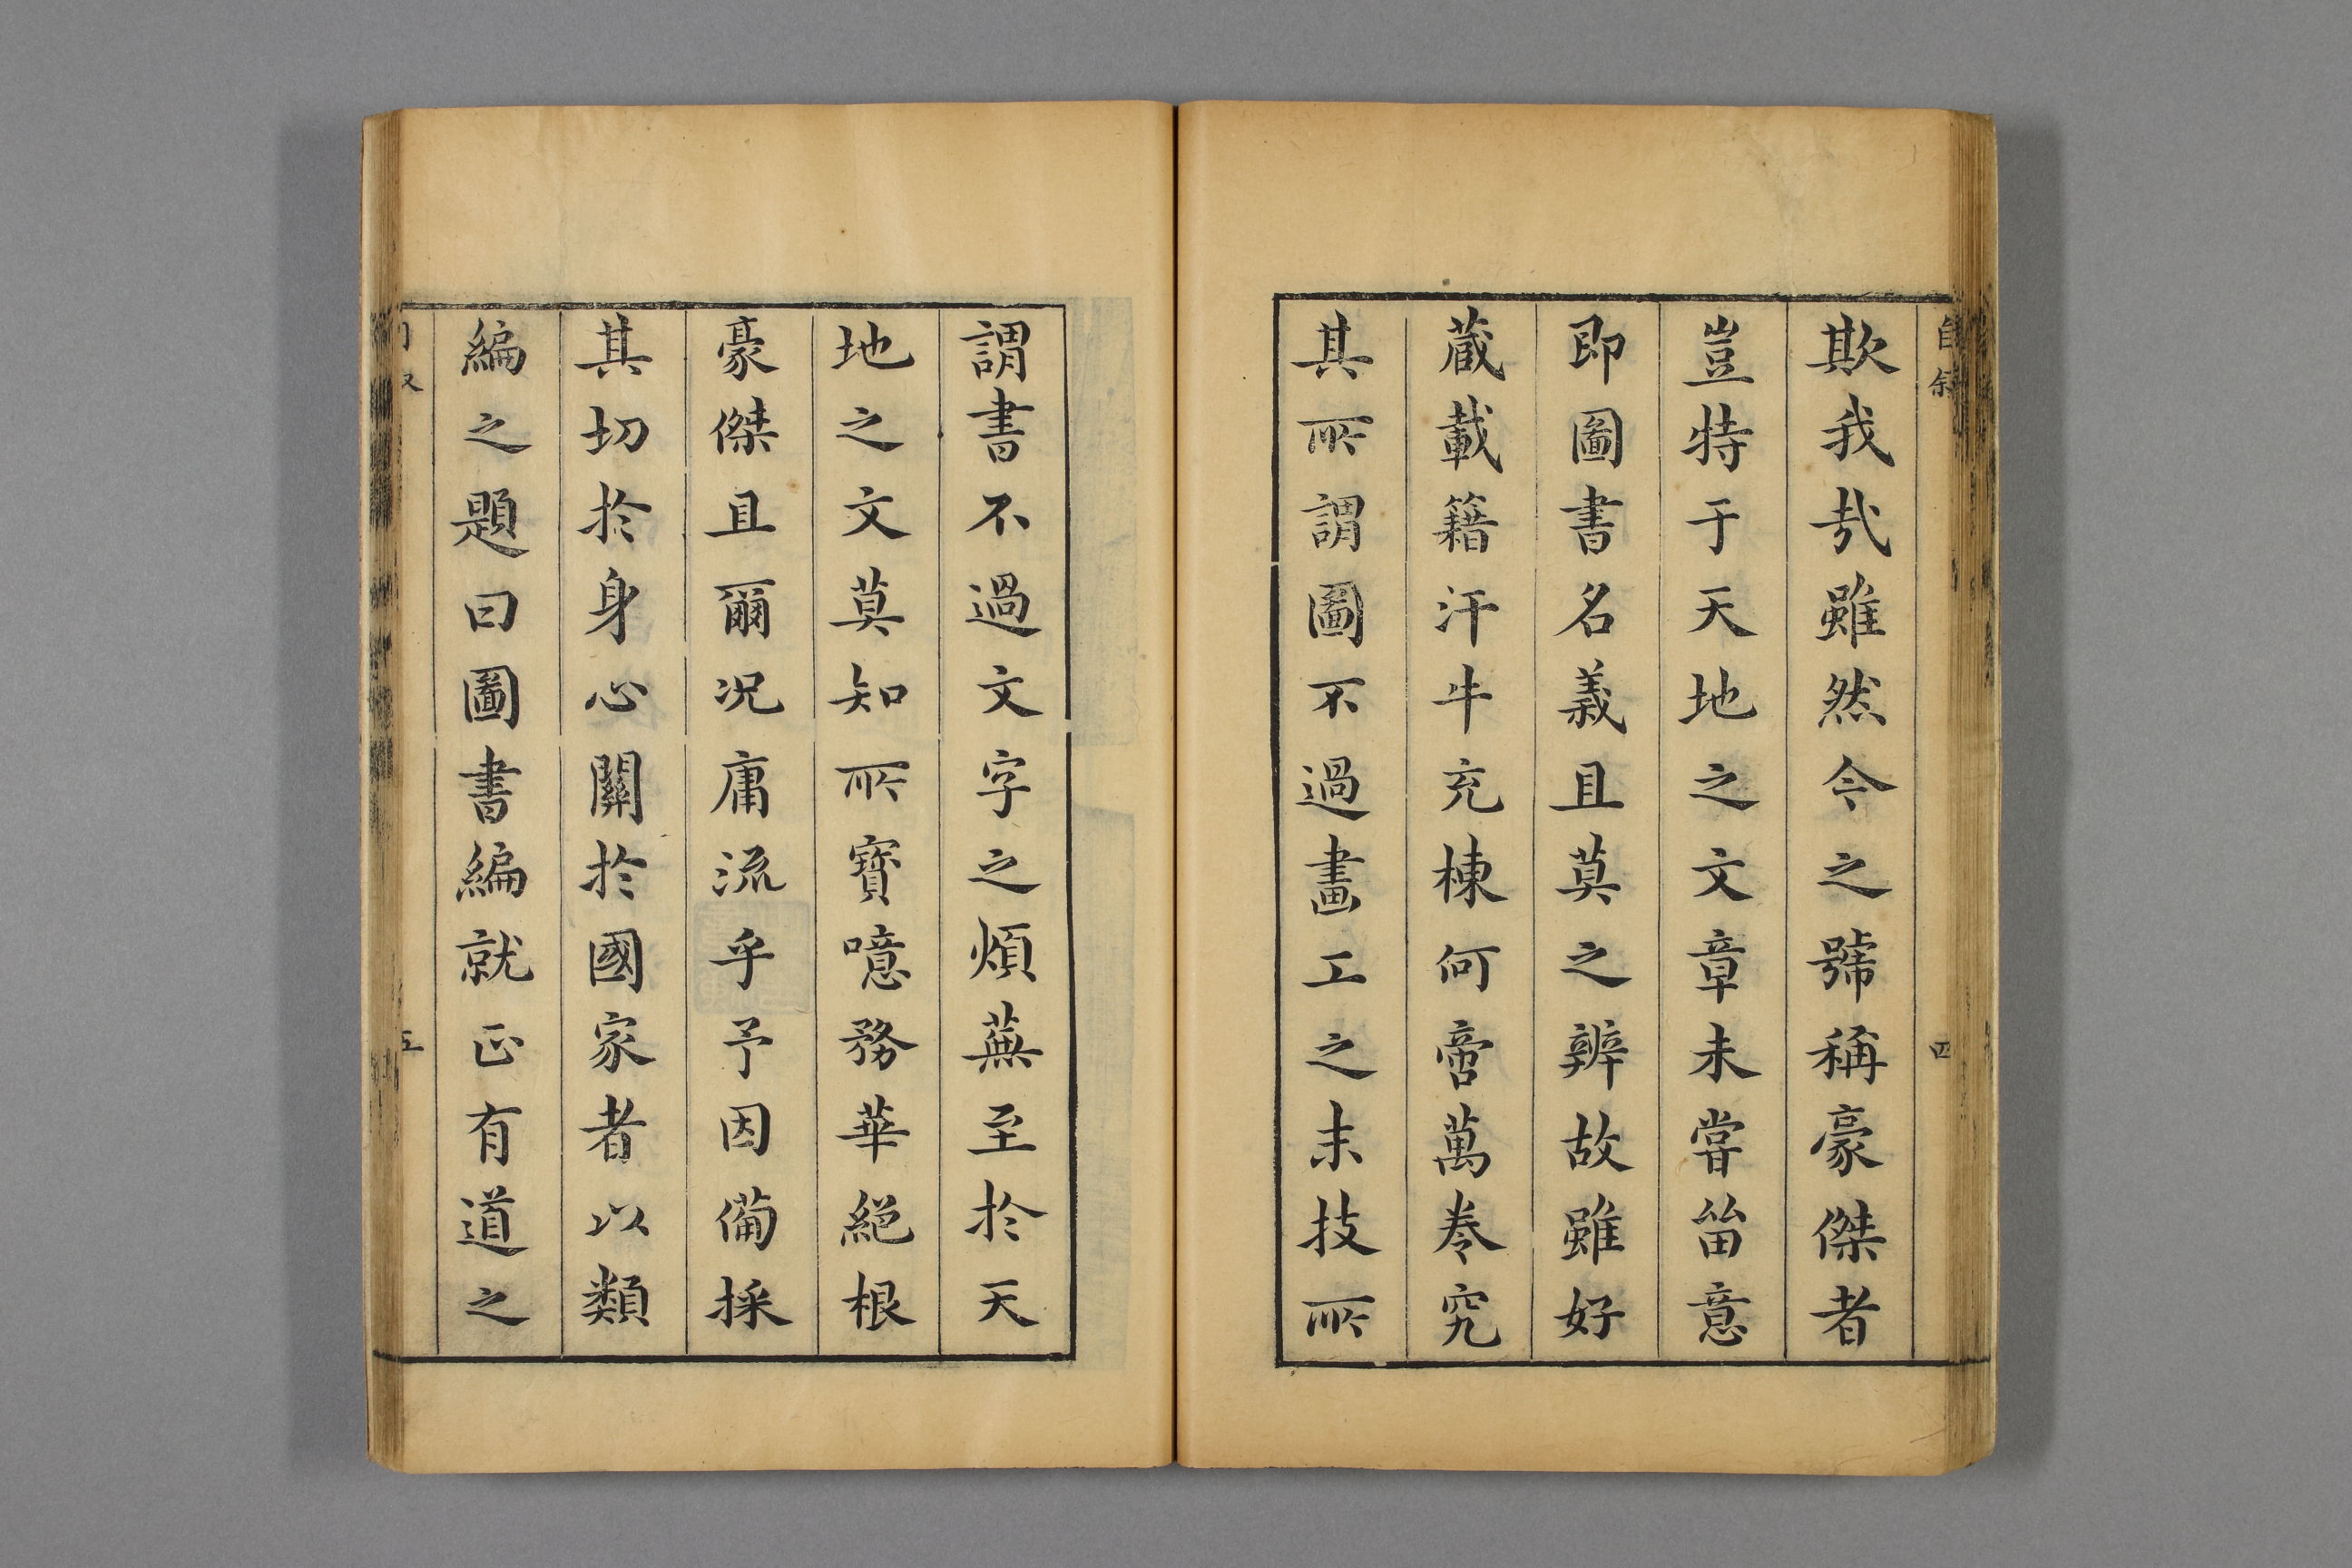 自叙
四
欺我㢤雖然今之號稱豪傑者
豈特于天地之文章未甞畱意
即圖書名義且莫之辨故雖好
蔵載籍汗牛充棟何啻萬卷究
其所謂圖不過畫工之末技所
謂書不過文字之煩蕪至於天
地之文莫知所寳噫務華絕根
豪傑且爾况庸流乎予因偹採
其切於身心關於國家者以類
編之題曰圖書編就正有道之
五